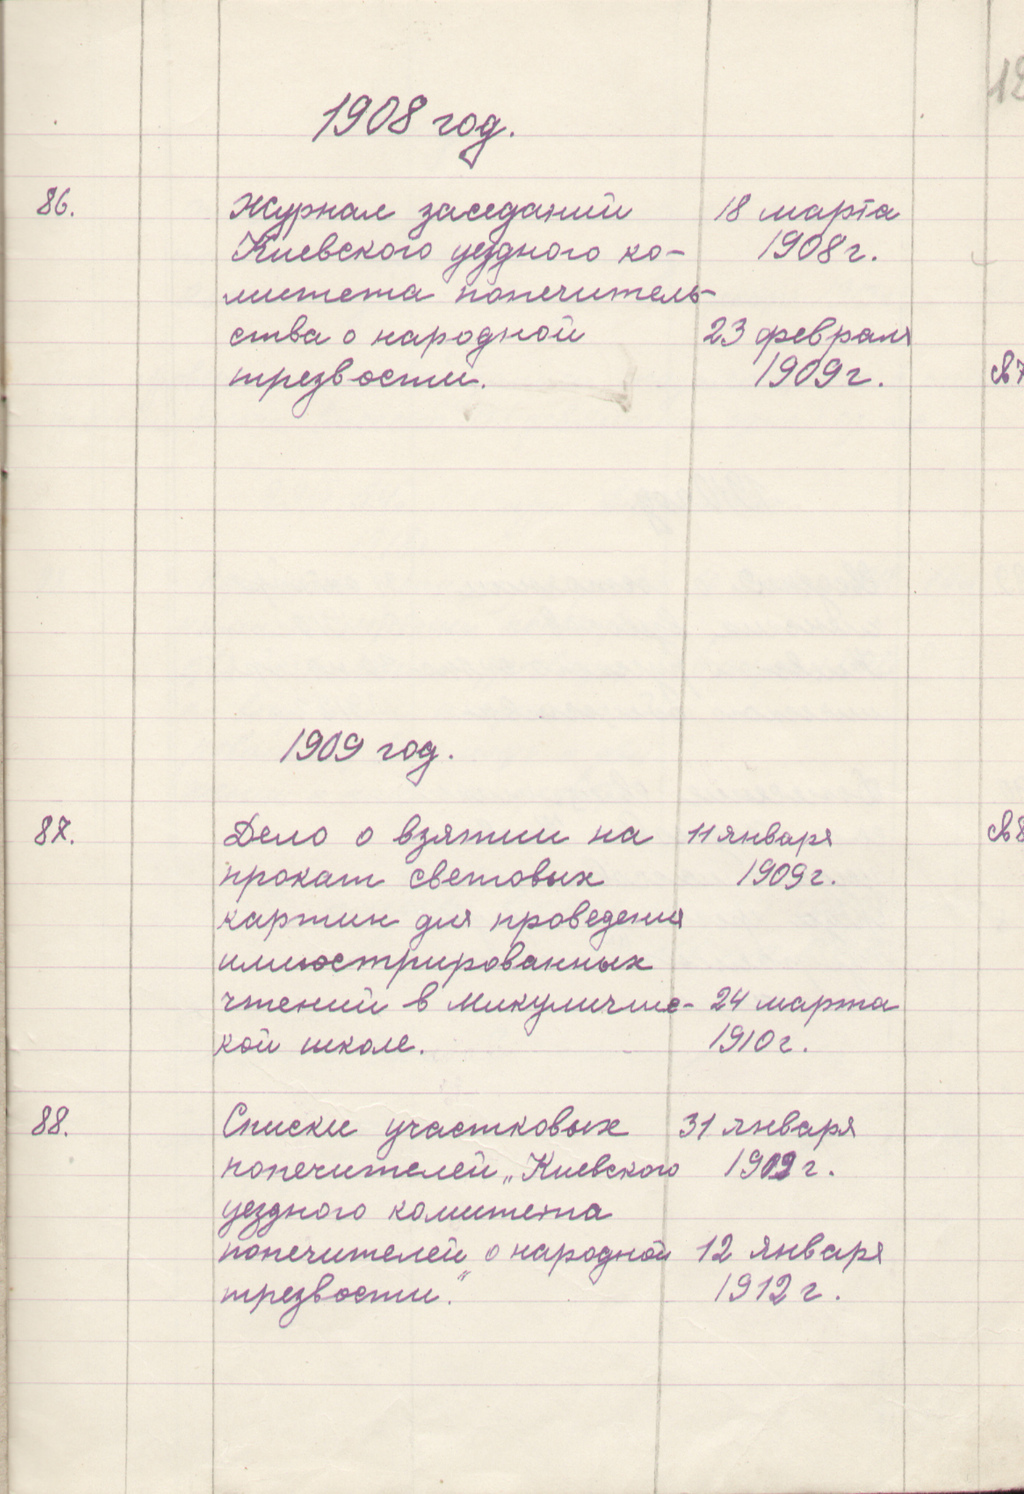 12
1908 год.
86. Журнал заседаний 18 марта
Киевского уездного ко- 1908 г.
митета попечитель-
ства о народной 23 февраля
трезвости. 1909 г. св 7
1909 год.
87. Дело о взятии на 11 января св 8
прокат световых 1909 г.
картин для проведения
иллюстрированных
чтений в Микуличис- 24 марта
кой школе. 1910 г.
88. Списки участковых 31 января
попечителей „Киевского 1909 г.
уездного комитета
попечителей о народной 12 января
трезвости." 1912 г.